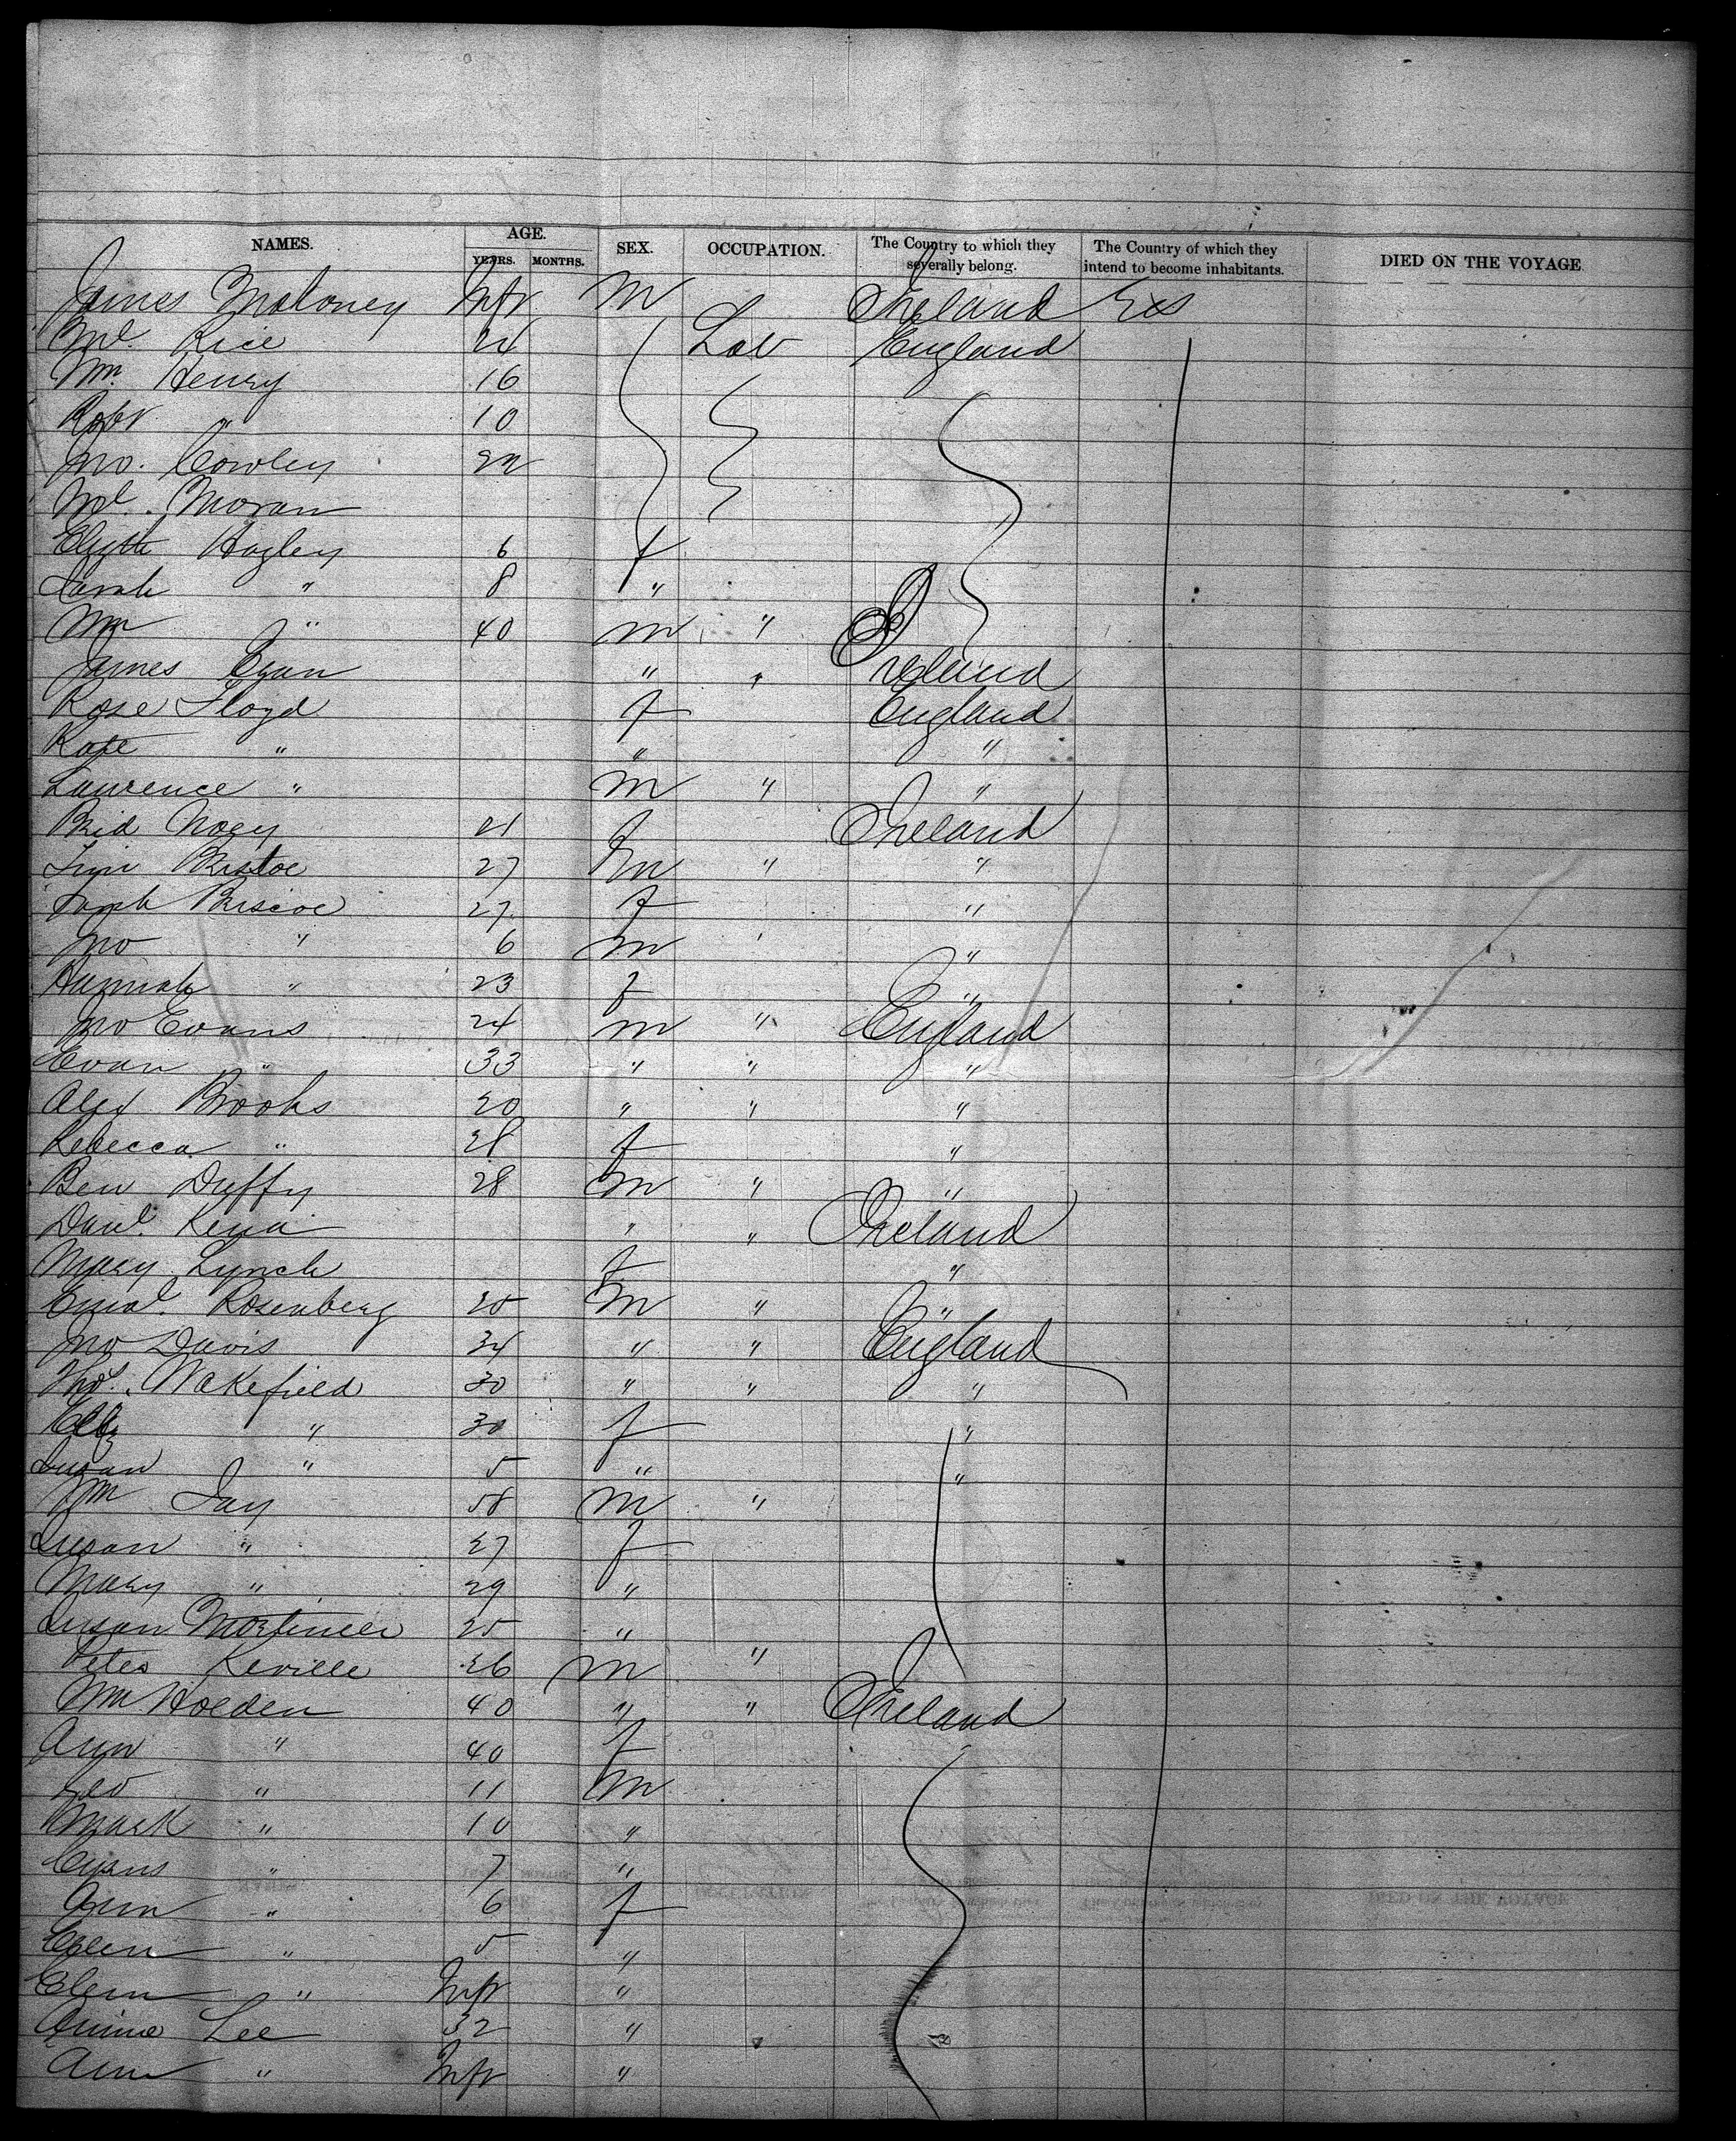 NAMES. AGE. SEX. OCCUPATION. The Country to which they severally belong. The Country of which they intend to become inhabitants. DIED ON THE VOYAGE
YEARS. MONTHS.
James Moloney Inft M Ireland
Ml. Rice 24 Lab England
Wm. Henry 16
Robt " 10
Jno. Cowley 22
Ml. Moran
Elizth Hagley 6 f
Sarah " 8 "
Wm " 40 M "
James Egan " " Ireland
Rose Floyd f England
Kate " " "
Laurence " M " "
Brid Nogy 21 f Ireland
Tim Bristoe 27 M " "
Sarah Briscoe 27 f "
Jno " 6 M ' "
Hannah " 23 f "
Jno Evans 24 M " England
Evan " 33 " " "
Alex Brooks 20 " " "
Rebecca " 28 f "
Ben Duffy 28 M " "
Danl. Kena " " Ireland
Mary Lynch f "
Emal. Rosenberg 20 M " "
Jno Davis 34 " " England
Thos. Wakefield 30 " " "
Eliz " 30 f "
Susan " 5 " "
Wm Jay 58 M "
Susan " 27 f
Mary " 29 "
Susan Mortimer 25 "
Peter Keville 26 M "
Wm Holden 40 " " Ireland
Ann " 40 f
Geo " 11 M
Mark " 10 "
Cyrus " 7 "
Ann " 6 f
Ellen " 5 "
Clem " Inft "
Annie Lee 32 "
Ann " Inft "